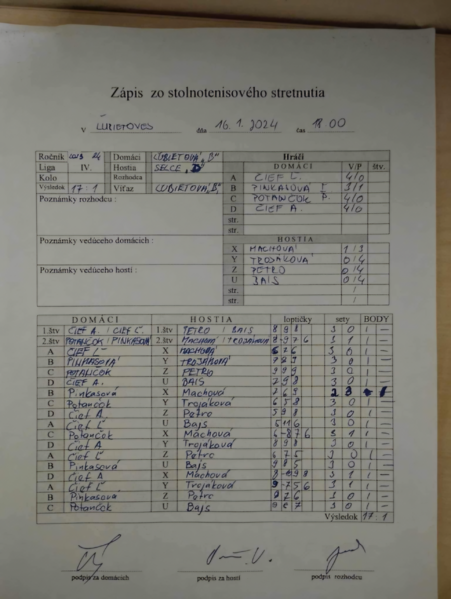 Zápis zo stolnotenisového stretnutia
v ĽUBIETOVEJ dňa 16.1.2024 čas 18.00
Ročník Domáci ĽUBIETOVÁ „B"
Liga IV. Hostia SELCE
Kolo Rozhodca
Výsledok 17:1 Víťaz ĽUBIETOVÁ „B"
Poznámky rozhodcu :
Poznámky vedúceho domácich :
Poznámky vedúceho hostí :
Hráči
DOMÁCI V/P štv.
A ČIEF Ľ. 4/0
B PINKASOVÁ 3/1
C POTANČOK P. 4/0
D ČIEF A. 4/0
str.
str.
HOSTIA
X MACHOVÁ 1/3
Y TROJÁKOVÁ 0/4
Z PETRO 0/4
U BAJS 0/4
str. /
str. /
DOMÁCI HOSTIA loptičky sety BODY
1.štv ČIEF A. ČIEF Ľ. 1.štv PETRO BAJS 3 0 1 -
2.štv POTANČOK PINKASOVÁ 2.štv MACHOVÁ TROJÁKOVÁ 3 1 1 -
A ČIEF Ľ X MACHOVÁ 3 0 1 -
B PINKASOVÁ Y TROJÁKOVÁ 3 0 1 -
C POTANČOK Z PETRO 9 9 9 3 0 1 -
D ČIEF A. U BAJS 3 0 1 -
B Pinkasová X Machová 2 3
C Potančok Y Trojáková 6 5 8 3 0 1 -
D Čief A Z Petro 5 9 8 3 0 1 -
A Čief Ľ U Bajs 3 0 1 -
C Potančok X Machová 6 -8 7 6 3 1 1 -
D Čief A Y Trojáková 8 9 8 3 0 1 -
A Čief Ľ Z Petro 6 7 5 3 0 1 -
B Pinkasová U Bajs 9 8 5 3 0 1 -
D Čief A X Machová 3 1 1 -
A Čief Ľ Y Trojáková 3 1 1 -
B Pinkasová Z Petro 3 0 1 -
C Potančok U Bajs 3 0 1 -
Výsledok 17 1
podpis za domácich podpis za hostí podpis rozhodcu